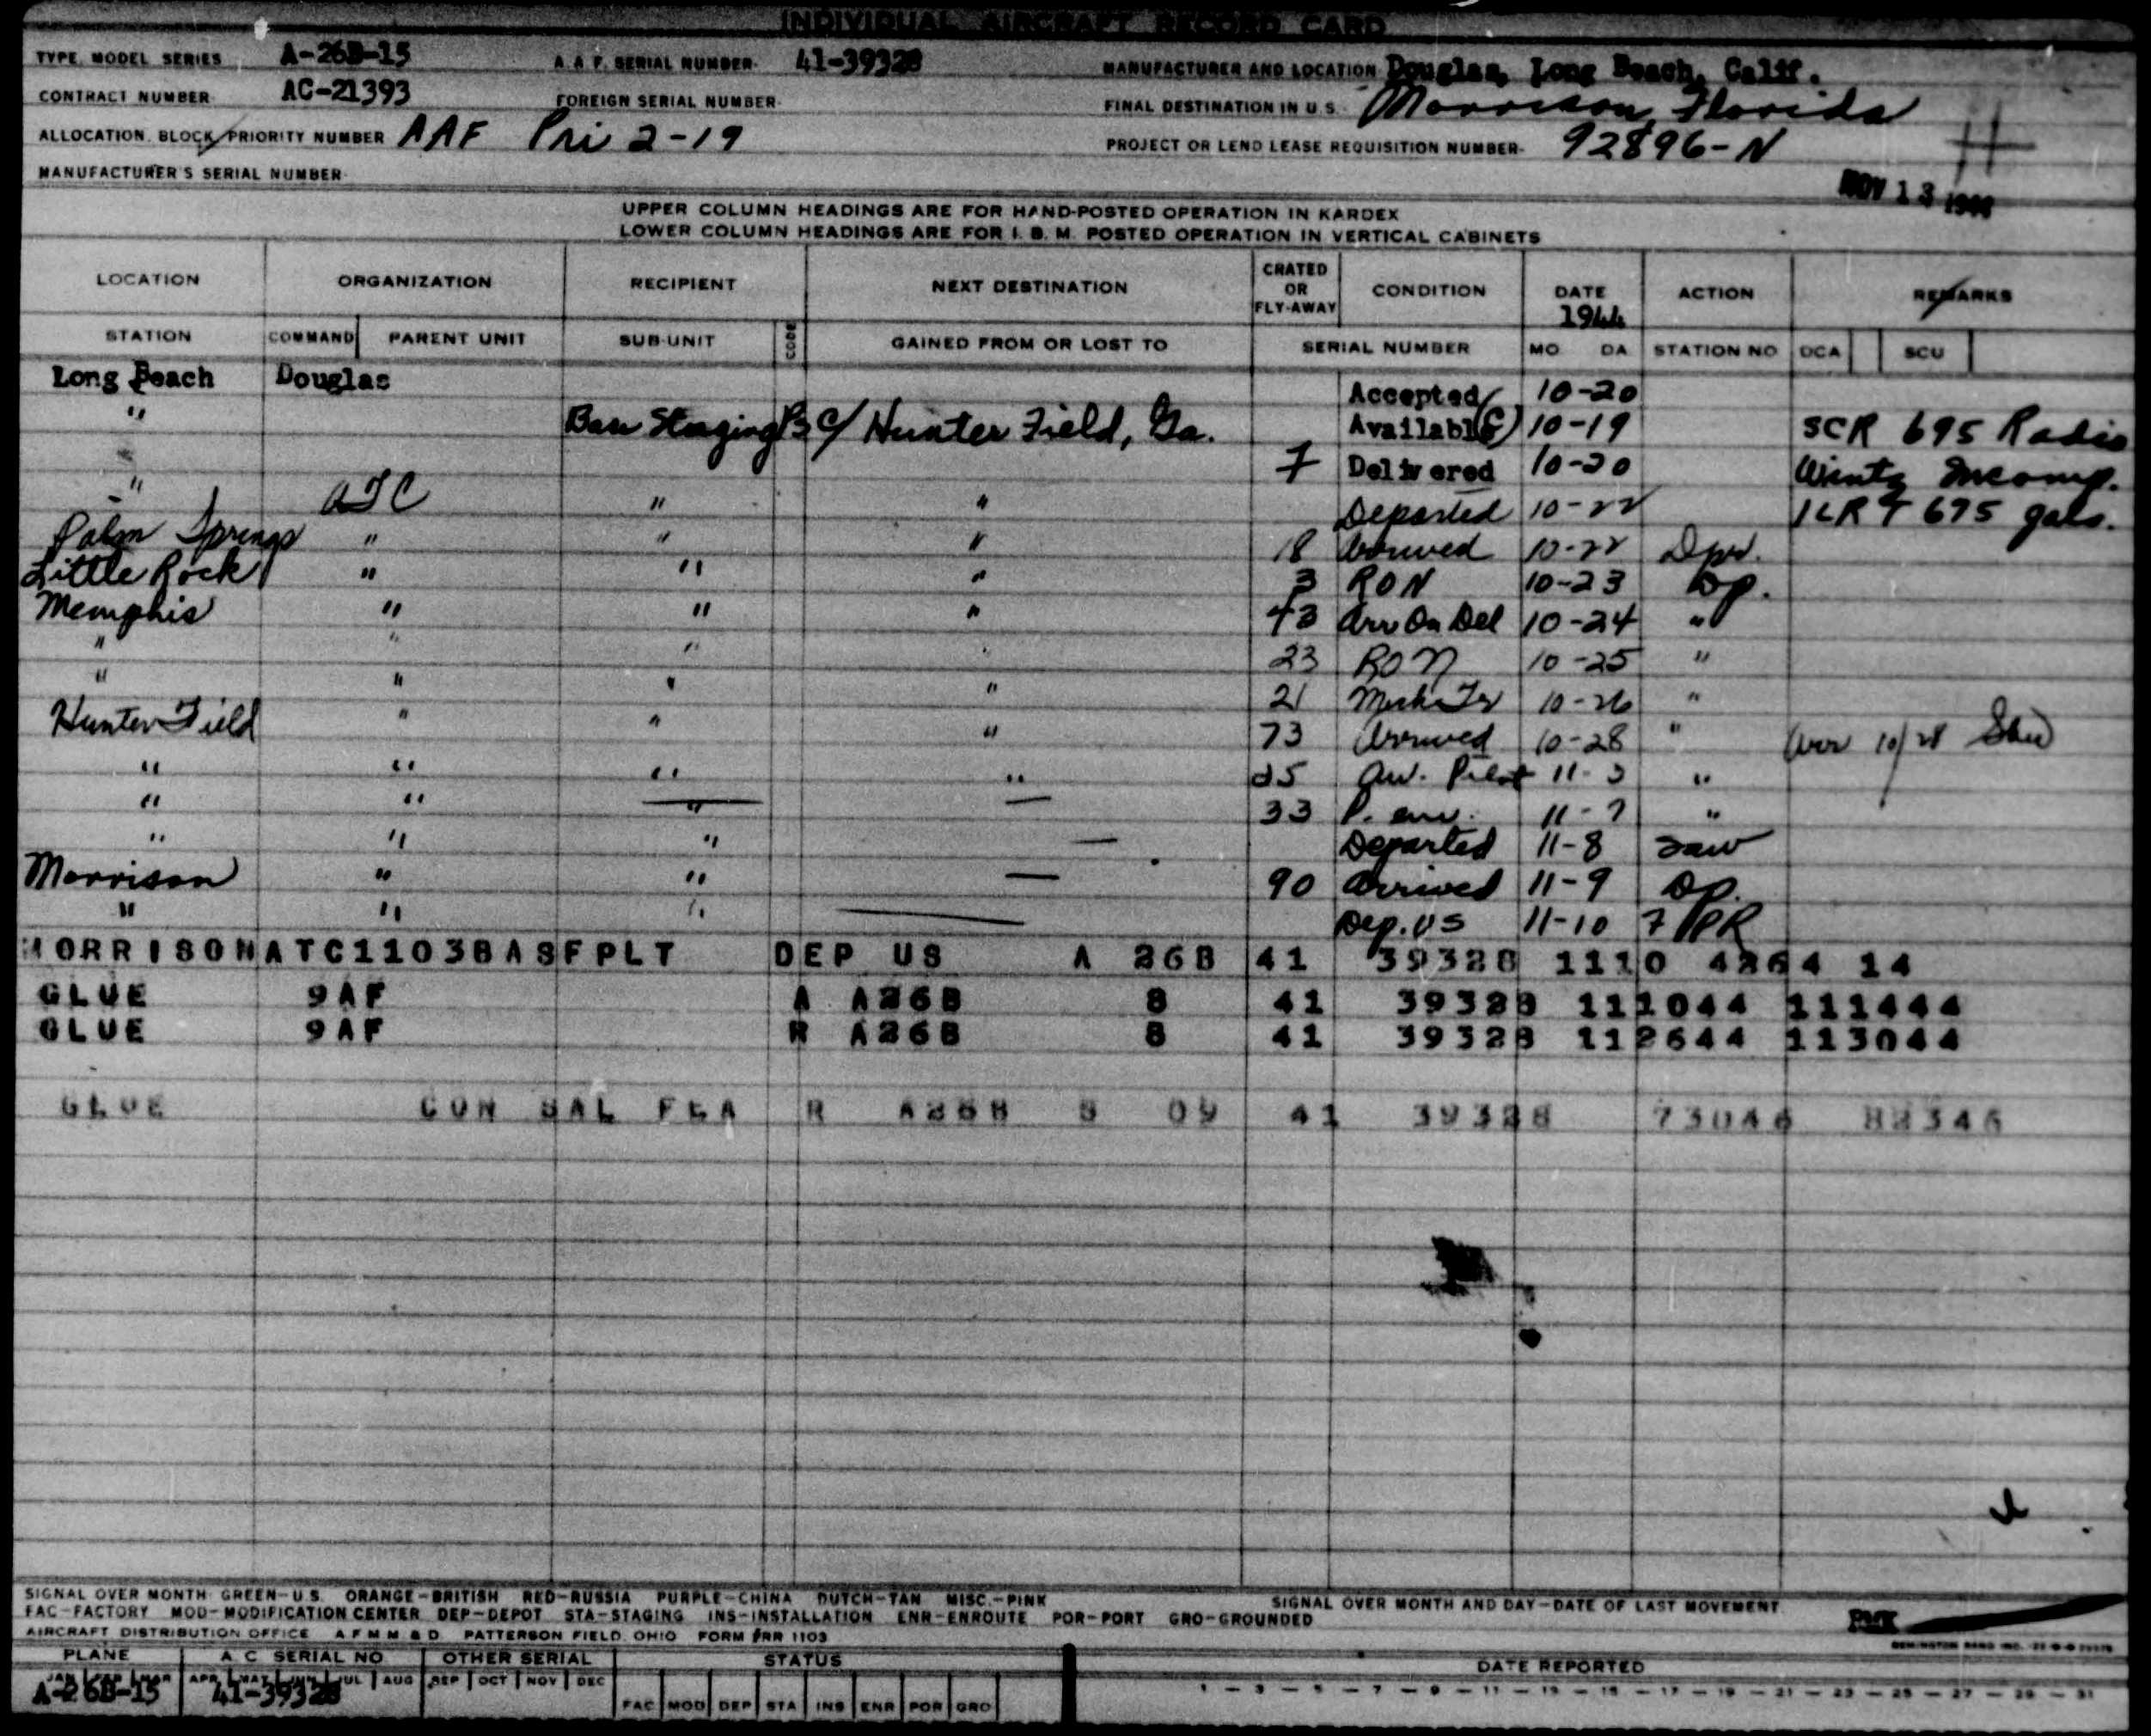 INDIVIDUAL AIRCRAFT RECORD CARD
TYPE, MODEL SERIES A-26B-15 A.A.F. SERIAL NUMBER 41-39328 MANUFACTURER AND LOCATION Douglas, Long Beach, Calif.
CONTRACT NUMBER AC-21393 FOREIGN SERIAL NUMBER FINAL DESTINATION IN U.S. Morrison, Florida
ALLOCATION, BLOCK, PRIORITY NUMBER AAF Pri 2-19 PROJECT OR LEND LEASE REQUISITION NUMBER 92896-N
MANUFACTURER'S SERIAL NUMBER
NOV 13 1944
UPPER COLUMN HEADINGS ARE FOR HAND-POSTED OPERATION IN KARDEX
LOWER COLUMN HEADINGS ARE FOR I.B.M. POSTED OPERATION IN VERTICAL CABINETS
LOCATION ORGANIZATION RECIPIENT NEXT DESTINATION CRATED OR FLY-AWAY CONDITION DATE 1944 ACTION REMARKS
STATION COMMAND PARENT UNIT SUB-UNIT CODE GAINED FROM OR LOST TO SERIAL NUMBER MO DA STATION NO DCA SCU
Long Beach Douglas Accepted 10-20
" Base Staging B C/ Hunter Field, Ga. Available (C) 10-19 SCR 695 Radio
" 7 Delivered 10-20 Wintz Incomp.
" ATC " " Departed 10-22 675 gals.
Palm Springs " " " 18 Arrived 10-22 Dpr.
Little Rock " " " 3 RON 10-23 Op.
Memphis " " " 43 Arr On Del 10-24 "
" " " " 23 RON 10-25 "
" " " " 21 10-26 "
Hunter Field " " " 73 Arrived 10-28 " Arr 10/28
" " " " 25 Aw. Pilot 11-3 "
" " " — 33 11-7 "
" " " — Departed 11-8
Morrison " " — 90 Arrived 11-9 Op.
" " " — Dep. US 11-10 7 PR
MORRISON ATC1103BASFPLT DEP US A 26B 41 39328 1110 4264 14
GLUE 9AF A A26B 8 41 39328 111044 111444
GLUE 9AF R A26B 8 41 39328 112644 113044
GLUE CON SAL FEA R A26B S 09 41 39328 73046 82346
SIGNAL OVER MONTH GREEN-U.S. ORANGE-BRITISH RED-RUSSIA PURPLE-CHINA DUTCH-TAN MISC.-PINK SIGNAL OVER MONTH AND DAY-DATE OF LAST MOVEMENT
FAC-FACTORY MOD-MODIFICATION CENTER DEP-DEPOT STA-STAGING INS-INSTALLATION ENR-ENROUTE POR-PORT GRO-GROUNDED
AIRCRAFT DISTRIBUTION OFFICE A F M M & D PATTERSON FIELD, OHIO FORM PRR 1103
PLANE A C SERIAL NO OTHER SERIAL STATUS DATE REPORTED
JAN FEB MAR APR MAY JUN JUL AUG SEP OCT NOV DEC 1 - 3 - 5 - 7 - 9 - 11 - 13 - 15 - 17 - 19 - 21 - 23 - 25 - 27 - 29 - 31
A-26B-15 41-39328 FAC MOD DEP STA INS ENR POR GRO